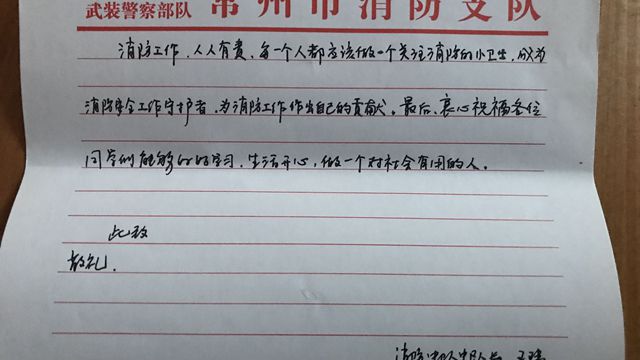 武装警察部队 常州市消防支队
消防工作，人人有责，每一个人都应该做一个关注消防的小卫士，成为
消防安全工作守护者，为消防工作作出自己的贡献。最后，衷心祝福各位
同学们能够好好学习，生活开心，做一个对社会有用的人。
此致
敬礼.
消防中队中队长